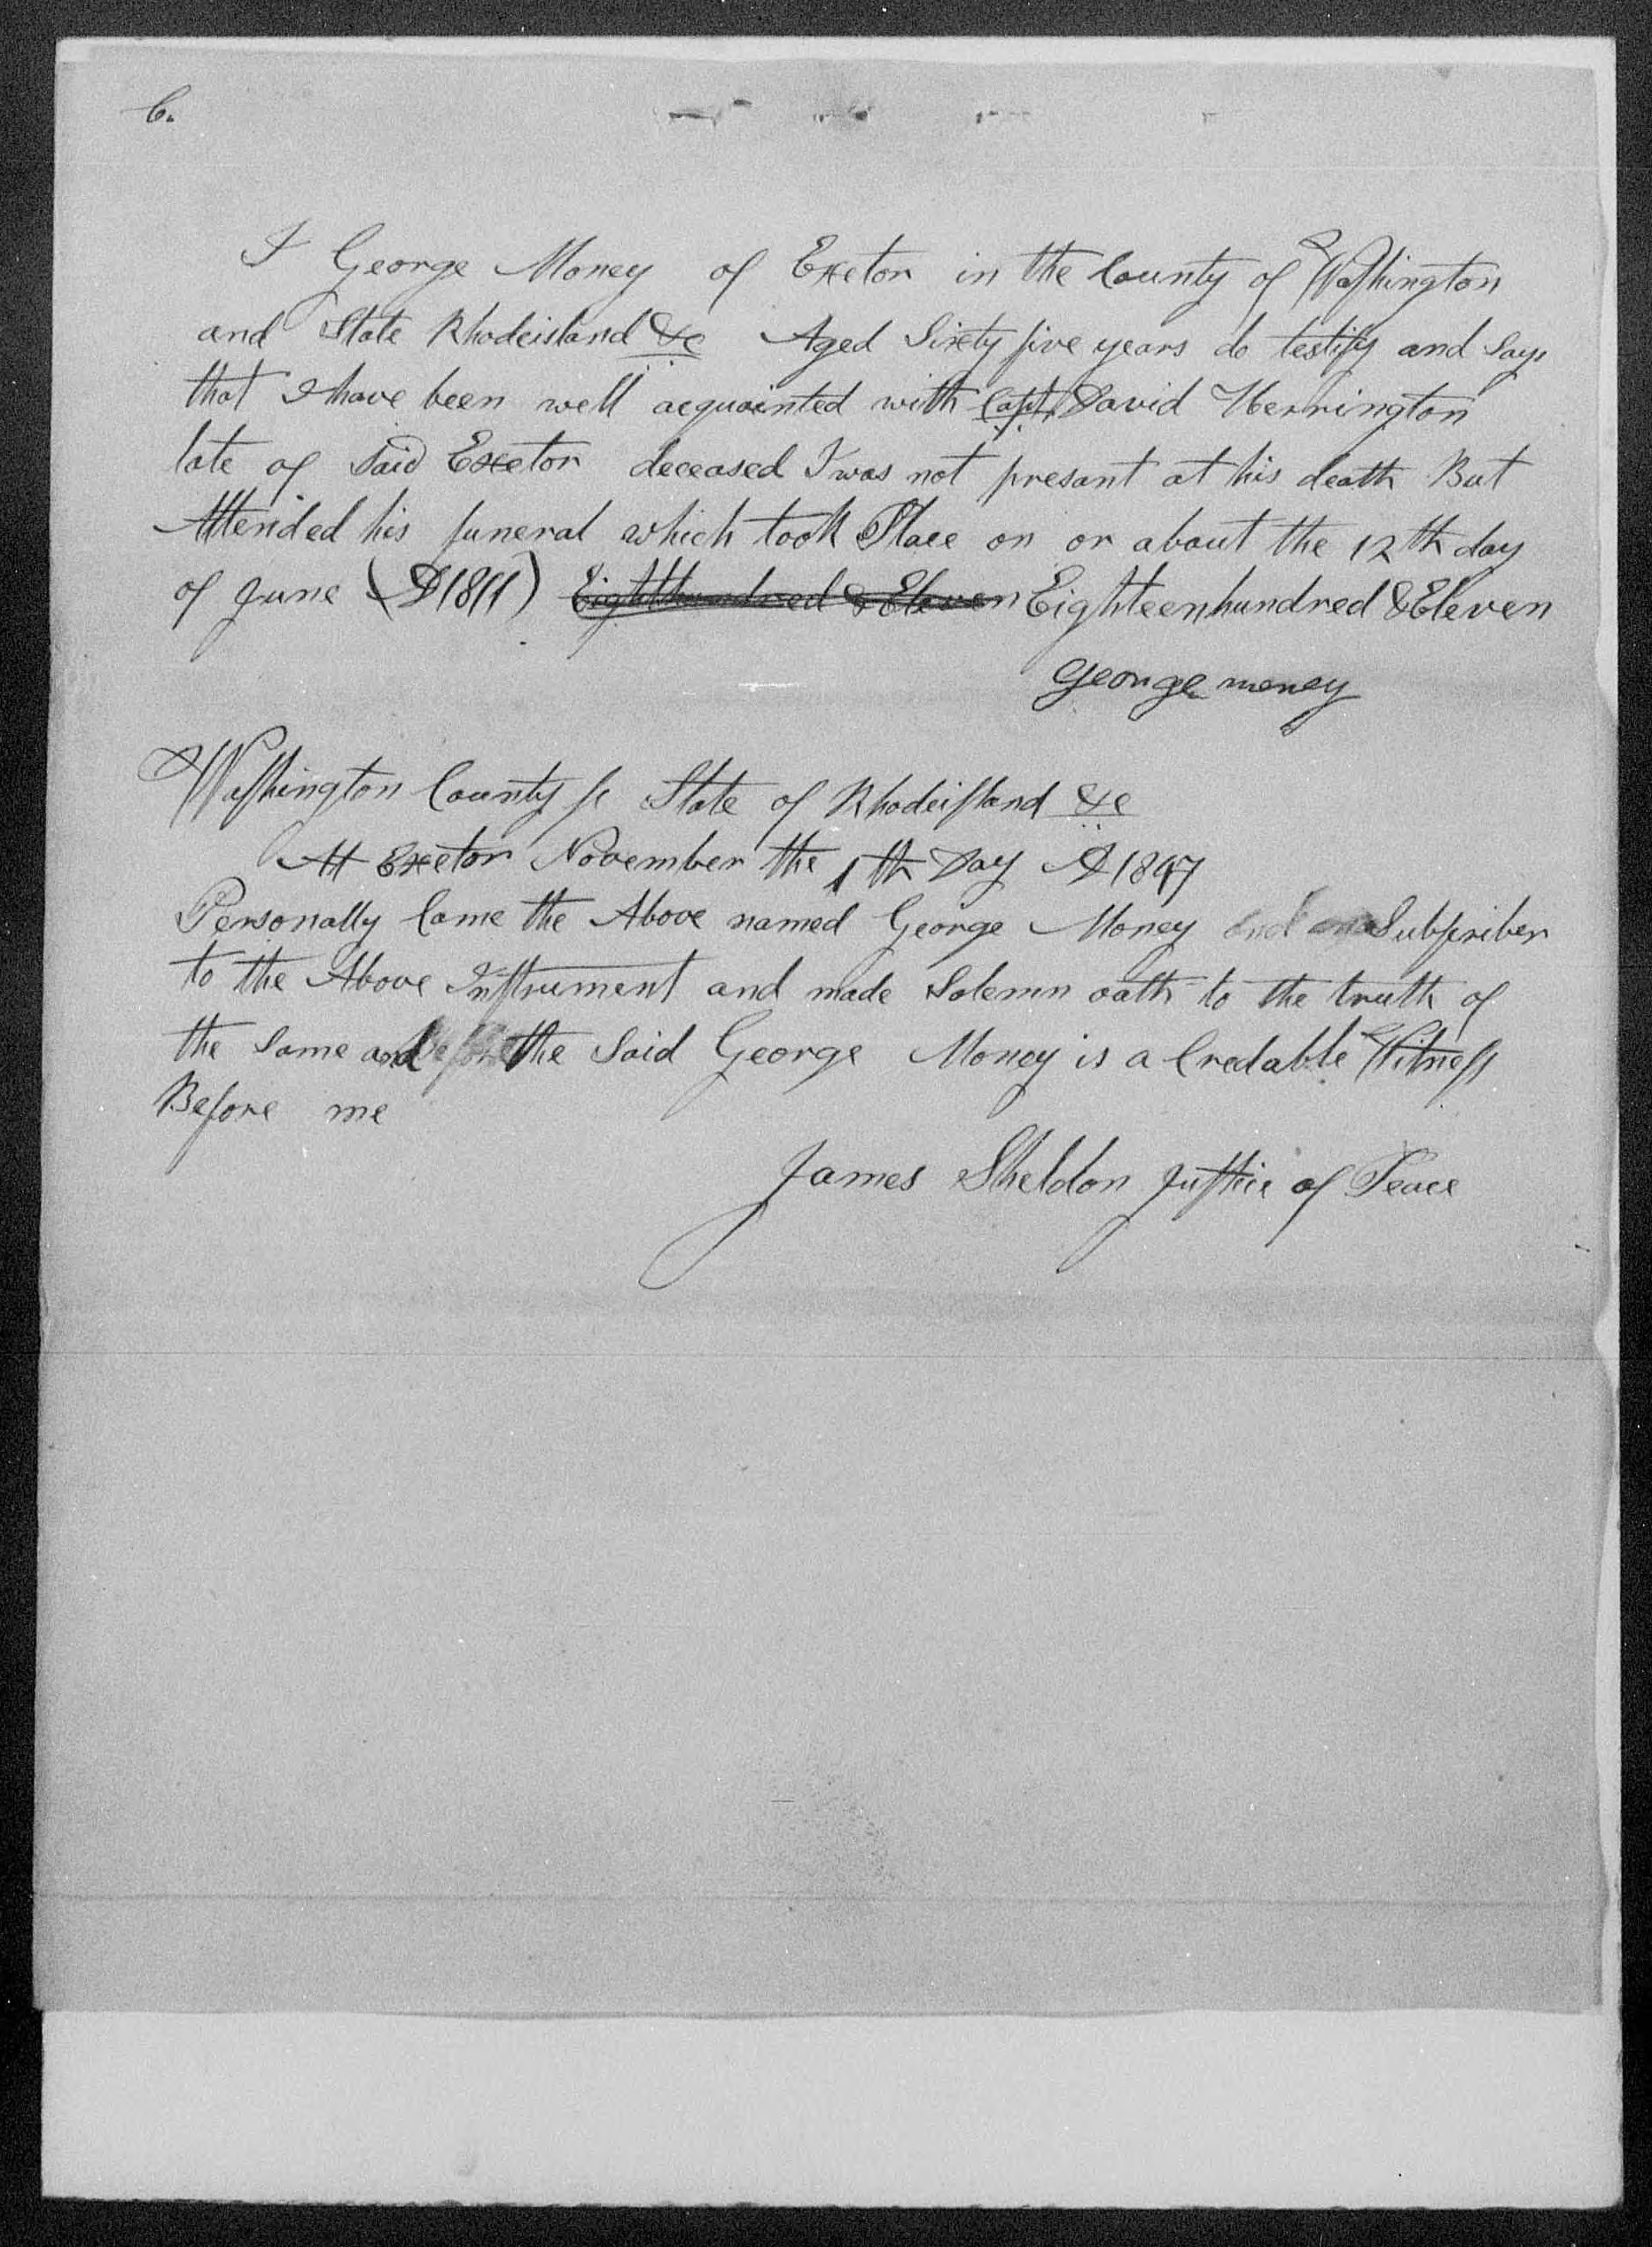 6.
I George Money of Exetor in the County of Washington
and State Rhodeisland &c Aged Sixty five years do testify and Say,
that I have been well acquainted with Capt. David Herrington
late of Said Exetor deceased I was not presant at his death But
Attended his funeral which took Place on or about the 12th day
of June (AD 1811) Eighthundred & Eleven Eighteenhundred & Eleven
George money
Washington County Sc State of Rhodeisland &c
At Exetor November the 1th Day AD 1847
Personally Came the Above named George Money Subscriber
to the Above Instrument and made Solemn oath to the truth of
the Same and the Said George Money is a Credable Witness
Before me
James Sheldon Justice of Peace